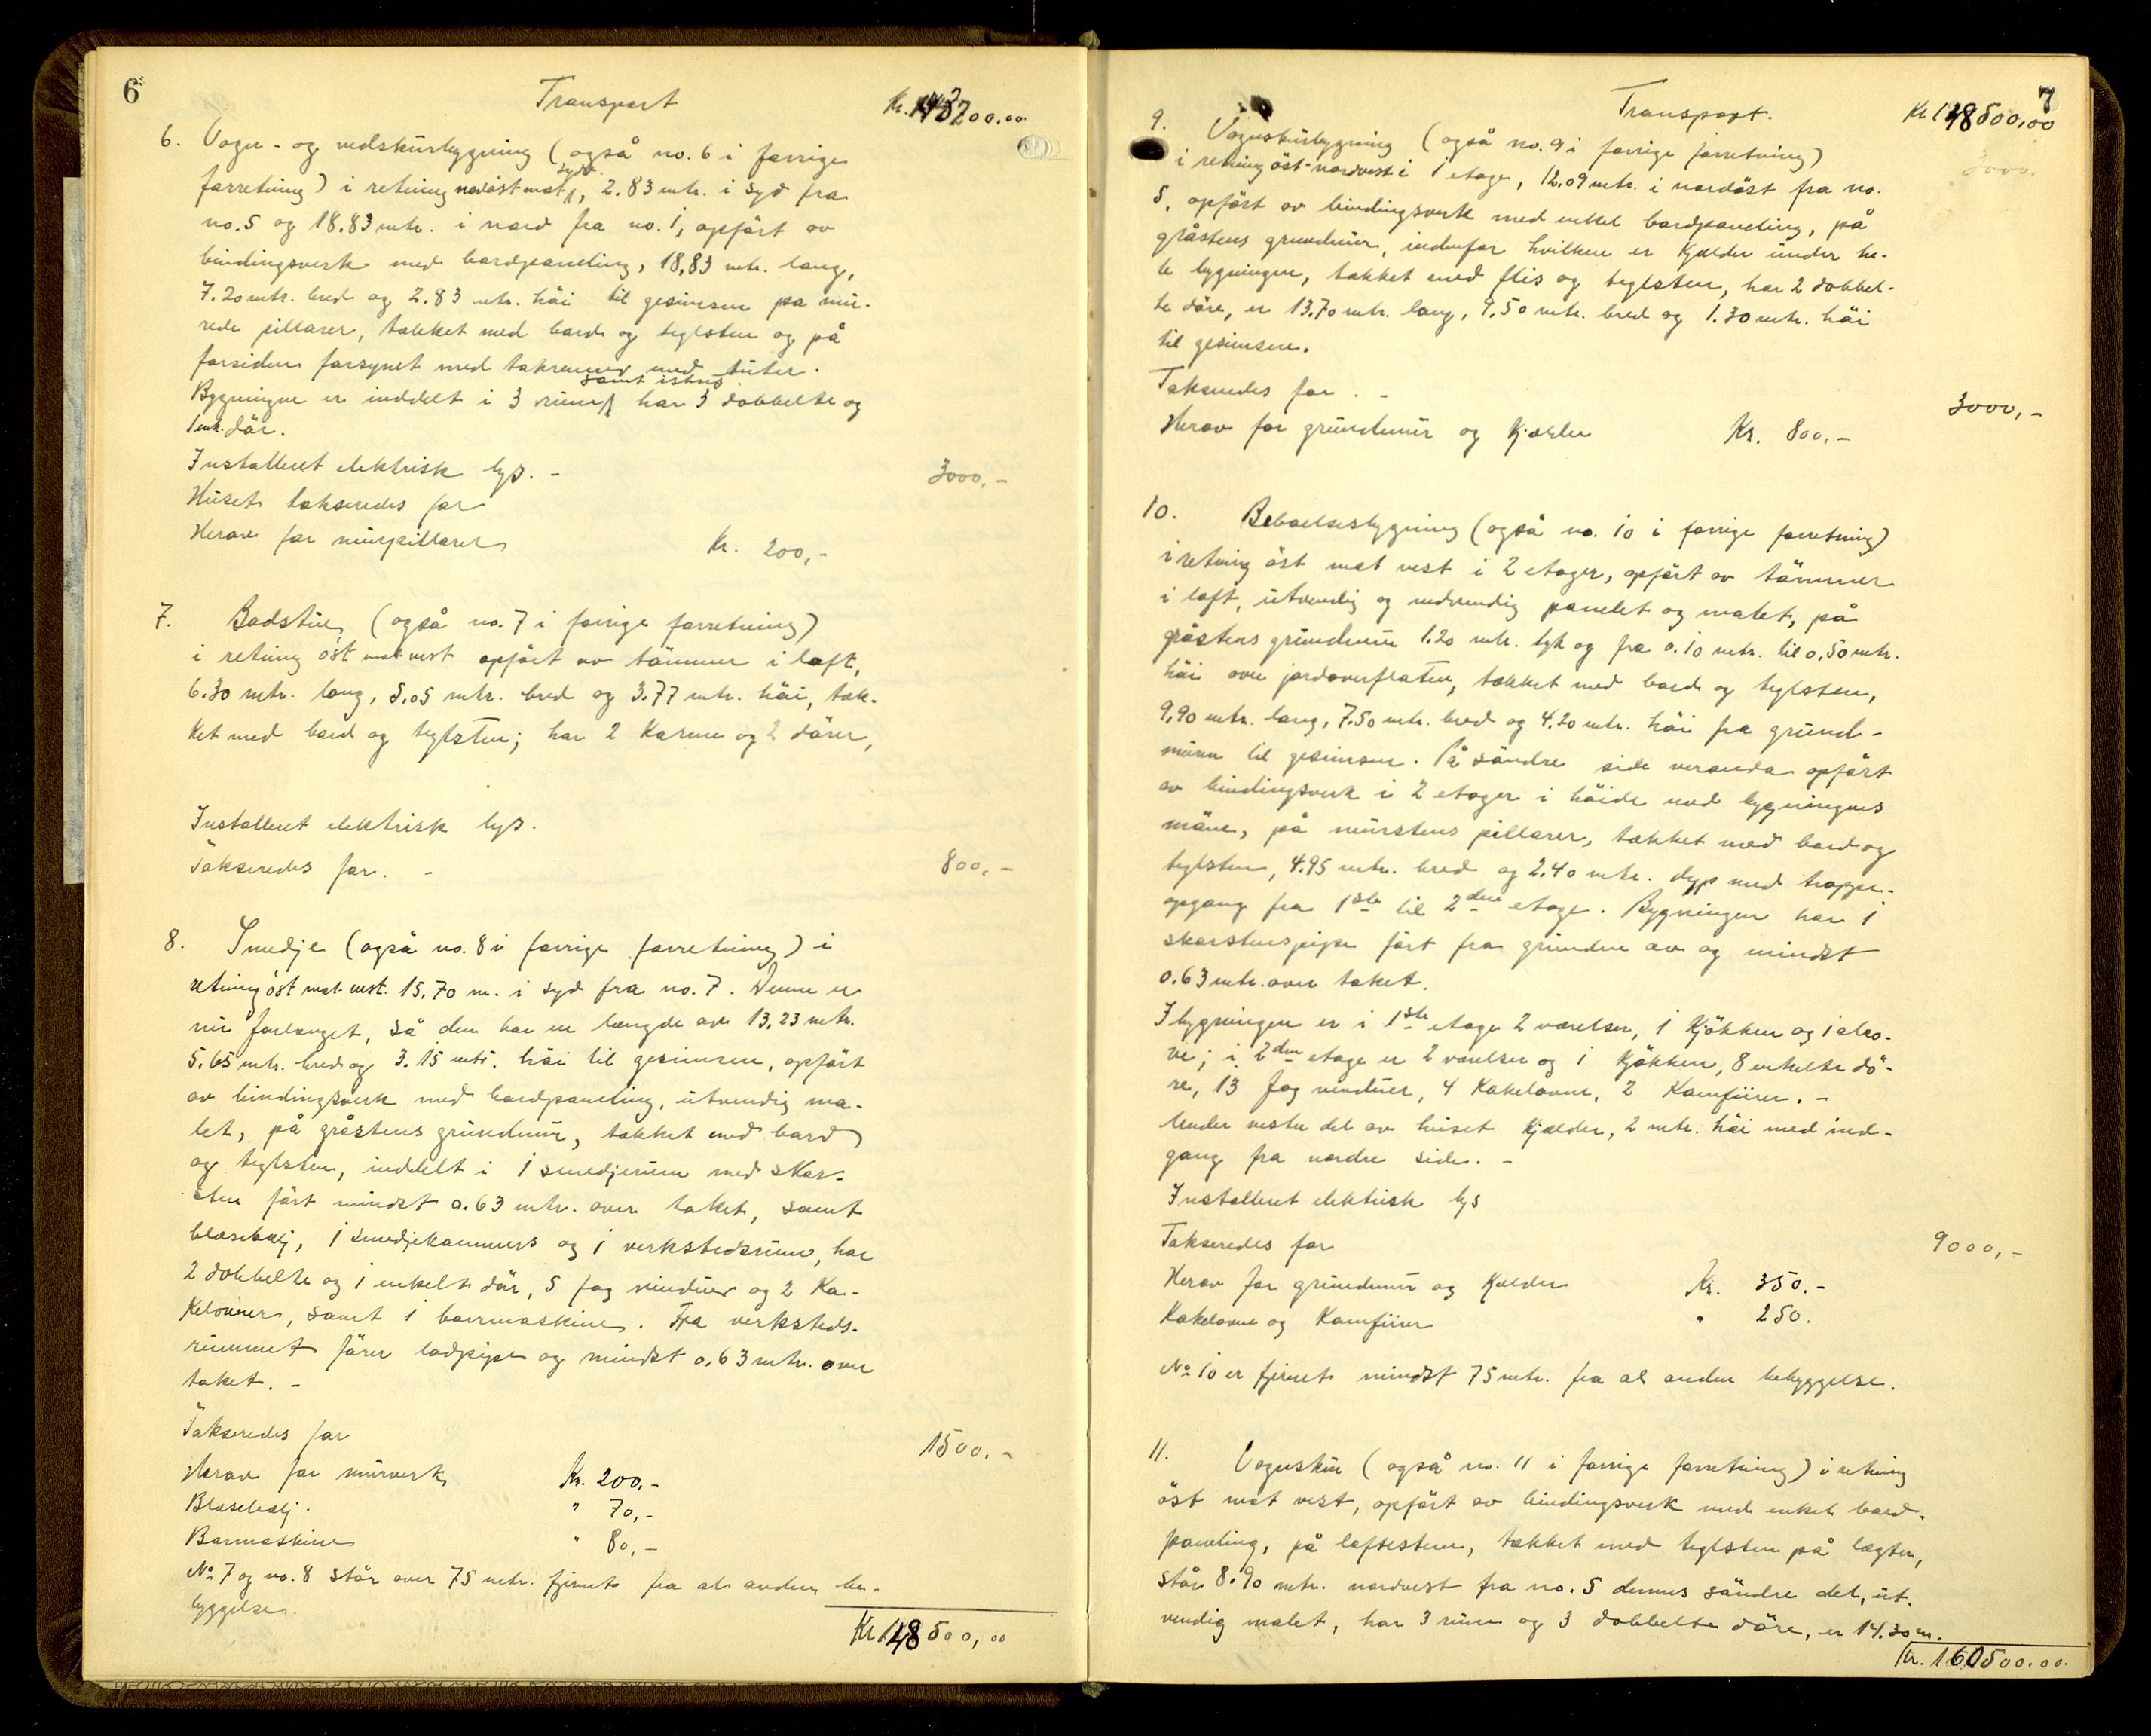 6
Transport
Kr. 143200.00
6. Vogn- og vedskursbygning (også no. 6 i forrige
forretning) i retning nordöst mot syd, 2.83 mtr. i syd fra
no. 5 og 18.83 mtr. i nord fra no. 1, opfört av
bindingsverk med bordpaneling, 18,83 mtr. lang,
7.20 mtr. bred og 2.83 mtr. höi til gesimsen pa mu-
rede pillarer, tækket med bord og teglsten og på
forsiden forsynet med takrenner med tuter.
Bygningen er inddelt i 3 rum samt ishus har 3 dobbelte og
1 enk. dör.
Installeret elektrisk lys. -
Huset takseredes for 3000,-
Herav for murpillarer Kr. 200,-
7. Badstue (også no. 7 i forrige forretning)
i retning öst mot vest opfört av tömmer i laft,
6.30 mtr. lang, 5,05 mtr. bred og 3.77 mtr. höi, tæk-
ket med bord og teglsten; har 2 karme og 2 dörer,
Installeret elektrisk lys.
Takseredes for. - 800,-
8. Smedje (også no. 8 i forrige forretning) i
retning öst mot vest. 15,70 m. i syd fra no. 7. Denne er
nu forlænget, så den har en længde av 13,23 mtr.
5.65 mtr. bred og 3.15 mtr. höi til gesimsen, opfört
av bindingsverk med bordpaneling, utvendig ma-
let, på gråstens grundmur, tækket med bord
og teglsten, inddelt i 1 smedjerum med skor-
sten fört mindst 0.63 mtr. over taket, samt
blæsebælj, 1 smedjekammers og 1 verkstedsrum, har
2 dobbelte og 1 enkelt dör, 5 fag vinduer og 2 ka-
kelovner, samt 1 bormaskine. Fra verksteds-
rummet förer lodpipe og mindst 0,63 mtr. over
taket. -
Takseredes for 1500.-
Herav for murverk Kr. 200,-
Blæsebælj. " 70,-
Bormaskine " 80,-
No 7 og no. 8 står over 75 mtr. fjernt fra al anden be-
byggelse.
Kr 148500,00
7
Transport.
Kr 148500,00
3000.
9. Vognskursbygning (også no. 9 i forrige forretning)
i retning öst-nordvest i 1 etage, 12.09 mtr. i nordöst fra no.
5, opfört av bindingsverk med enkel bordpaneling, på
gråstens grundmur, indenfor hvilken er kjælder under he-
le bygningen, tækket med flis og teglsten, har 2 dobbel-
te döre, er 13.70 mtr. lang, 9,50 mtr. bred og 1.30 mtr. höi
til gesimsen.
Takseredes for. - 3000,-
Herav for grundmur og kjælder Kr. 800.-
10. Beboelsesbygning (også no. 10 i forrige forretning)
i retning öst mot vest i 2 etager, opfört av tömmer
i laft, utvendig og indvendig panelet og malet, på
gråstens grundmur 1.20 mtr. tyk og fra 0.10 mtr. til 0,50 mtr.
höi over jordoverflaten, tækket med bord og teglsten,
9,90 mtr. lang, 7.50 mtr. bred og 4.20 mtr. höi fra grund-
muren til gesimsen. På söndre side veranda opfört
av bindingsverk i 2 etager i höide med bygningens
möne, på murstens pillarer, tækket med bord og
teglsten, 4.95 mtr. bred og 2.40 mtr. dyp med trappe-
opgang fra 1ste til 2den etage. Bygningen har 1
skorstenspipe fört fra grunden av og mindst
0.63 mtr. over taket.
I bygningen er i 1ste etage 2 værelser, 1 kjökken og 1 alko-
ve; i 2den etage er 2 værelser og 1 kjökken, 8 enkelte dö-
re, 13 fag vinduer, 4 kakelovne, 2 Komfürer. -
Under vestre del av huset kjælder, 2 mtr. höi med ind-
gang fra nordre side. -
Installeret elektrisk lys
Takseredes for 9000,-
Herav for grundmur og kjælder Kr. 350.-
Kakelovne og Komfürer " 250.
No 10 er fjernet mindst 75 mtr. fra al anden bebyggelse.
11. Vognskur (også no. 11 i forrige forretning) i retning
öst mot vest, opfört av bindingsverk med enkel bord-
paneling, på löftestene, tækket med teglsten på lægter,
står 8.90 mtr. nordvest fra no. 5 dennes söndre del, ut-
vendig malet, har 3 rum og 3 dobbelte döre, er 14.30 m.
Kr. 160500.00.